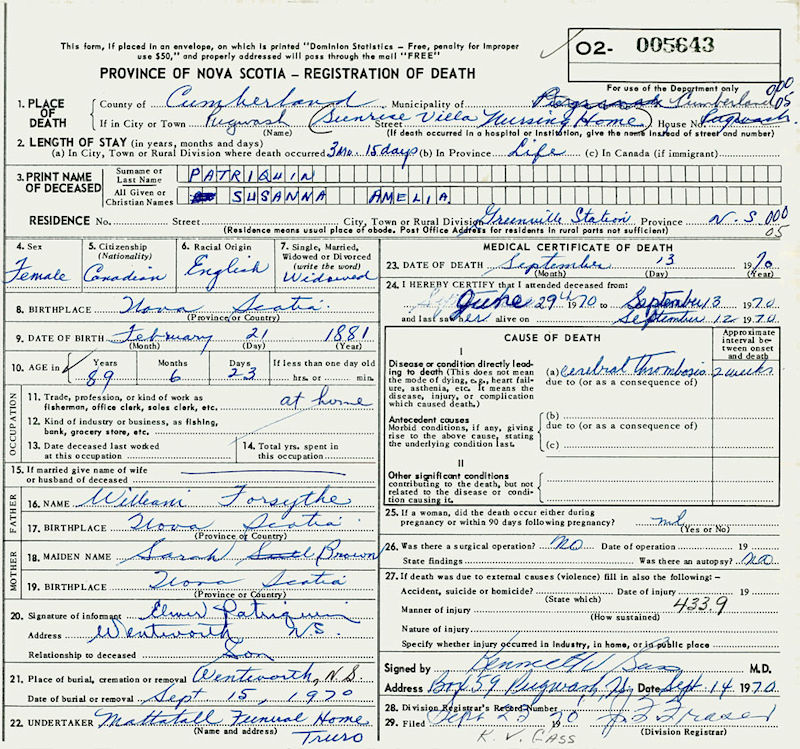 This form, if placed in an envelope, on which is printed "Dominion Statistics — Free, penalty for improper
use $50," and properly addressed will pass through the mail "FREE"
O2- 005643
For use of the Department only
PROVINCE OF NOVA SCOTIA — REGISTRATION OF DEATH
1. PLACE OF DEATH
County of Cumberland Municipality of Cumberland 000 05
If in City or Town Pugwash (Sunrise Villa Nursing Home) House No. Pugwash
(Name) (If death occurred in a hospital or institution, give the name instead of street and number)
2. LENGTH OF STAY (in years, months and days)
(a) In City, Town or Rural Division where death occurred 3 mo. 15 days (b) In Province Life (c) In Canada (if immigrant)
3. PRINT NAME OF DECEASED
Surname or Last Name PATRIQUIN
All Given or Christian Names SUSANNA AMELIA
RESIDENCE No. Street City, Town or Rural Division Greenville Station Province N.S. 000 05
(Residence means usual place of abode. Post Office Address for residents in rural parts not sufficient)
4. Sex Female
5. Citizenship (Nationality) Canadian
6. Racial Origin English
7. Single, Married, Widowed or Divorced (write the word) Widowed
8. BIRTHPLACE Nova Scotia
(Province or Country)
9. DATE OF BIRTH February 21 1881
(Month) (Day) (Year)
10. AGE in Years 89 Months 6 Days 23 If less than one day old hrs. or min.
OCCUPATION
11. Trade, profession, or kind of work as fisherman, office clerk, sales clerk, etc. at home
12. Kind of industry or business, as fishing, bank, grocery store, etc.
13. Date deceased last worked at this occupation
14. Total yrs. spent in this occupation
15. If married give name of wife or husband of deceased
FATHER
16. NAME William Forsythe
17. BIRTHPLACE Nova Scotia
(Province or Country)
MOTHER
18. MAIDEN NAME Sarah Brown
19. BIRTHPLACE Nova Scotia
(Province or Country)
20. Signature of informant Elmer Patriquin
Address Wentworth N.S.
Relationship to deceased Son
21. Place of burial, cremation or removal Wentworth, N S
Date of burial or removal Sept 15, 1970
22. UNDERTAKER Mattatall Funeral Home
(Name and address) Truro
MEDICAL CERTIFICATE OF DEATH
23. DATE OF DEATH September 13 1970
(Month) (Day) (Year)
24. I HEREBY CERTIFY that I attended deceased from:
June 29th 1970 to September 13 1970
and last saw her alive on September 12 1970
CAUSE OF DEATH
Approximate interval between onset and death
I
Disease or condition directly leading to death (This does not mean the mode of dying, e.g., heart failure, asthenia, etc. It means the disease, injury, or complication which caused death.)
(a) cerebral thrombosis 2 weeks
due to (or as a consequence of)
Antecedent causes
Morbid conditions, if any, giving rise to the above cause, stating the underlying condition last.
(b)
due to (or as a consequence of)
(c)
II
Other significant conditions
contributing to the death, but not related to the disease or condition causing it.
25. If a woman, did the death occur either during pregnancy or within 90 days following pregnancy? nil
(Yes or No)
26. Was there a surgical operation? NO Date of operation 19
State findings Was there an autopsy? NO
27. If death was due to external causes (violence) fill in also the following:—
Accident, suicide or homicide? Date of injury 19
(State which)
Manner of injury 433.9
(How sustained)
Nature of injury
Specify whether injury occurred in industry, in home, or in public place
Signed by M.D.
Address Box 59 Pugwash, NS Date Sept 14 1970
28. Division Registrar's Record Number
29. Filed Sept 19 70
(Division Registrar)
K. V. GASS